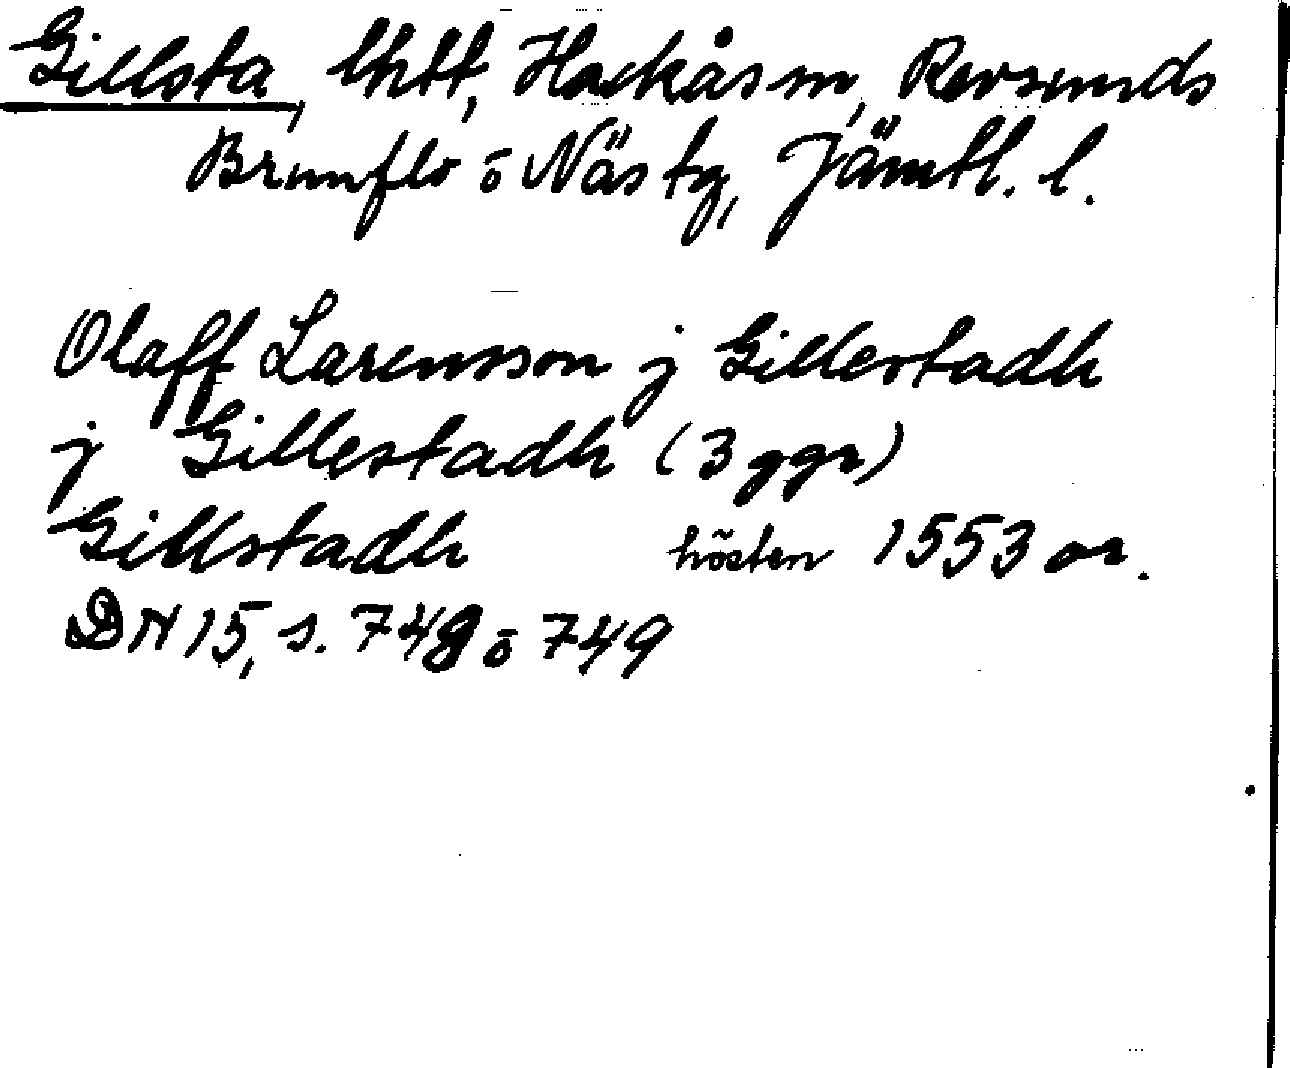 Gillsta, thtt, Hackås sn, Revsunds
Brunflo o Näs tg, Jämtl. l.
Olaff Larensson j Gillestadh
j Gillestadh (3 ggr)
Gillstadh hösten 1553 or.
DN 15, s. 748 o 749